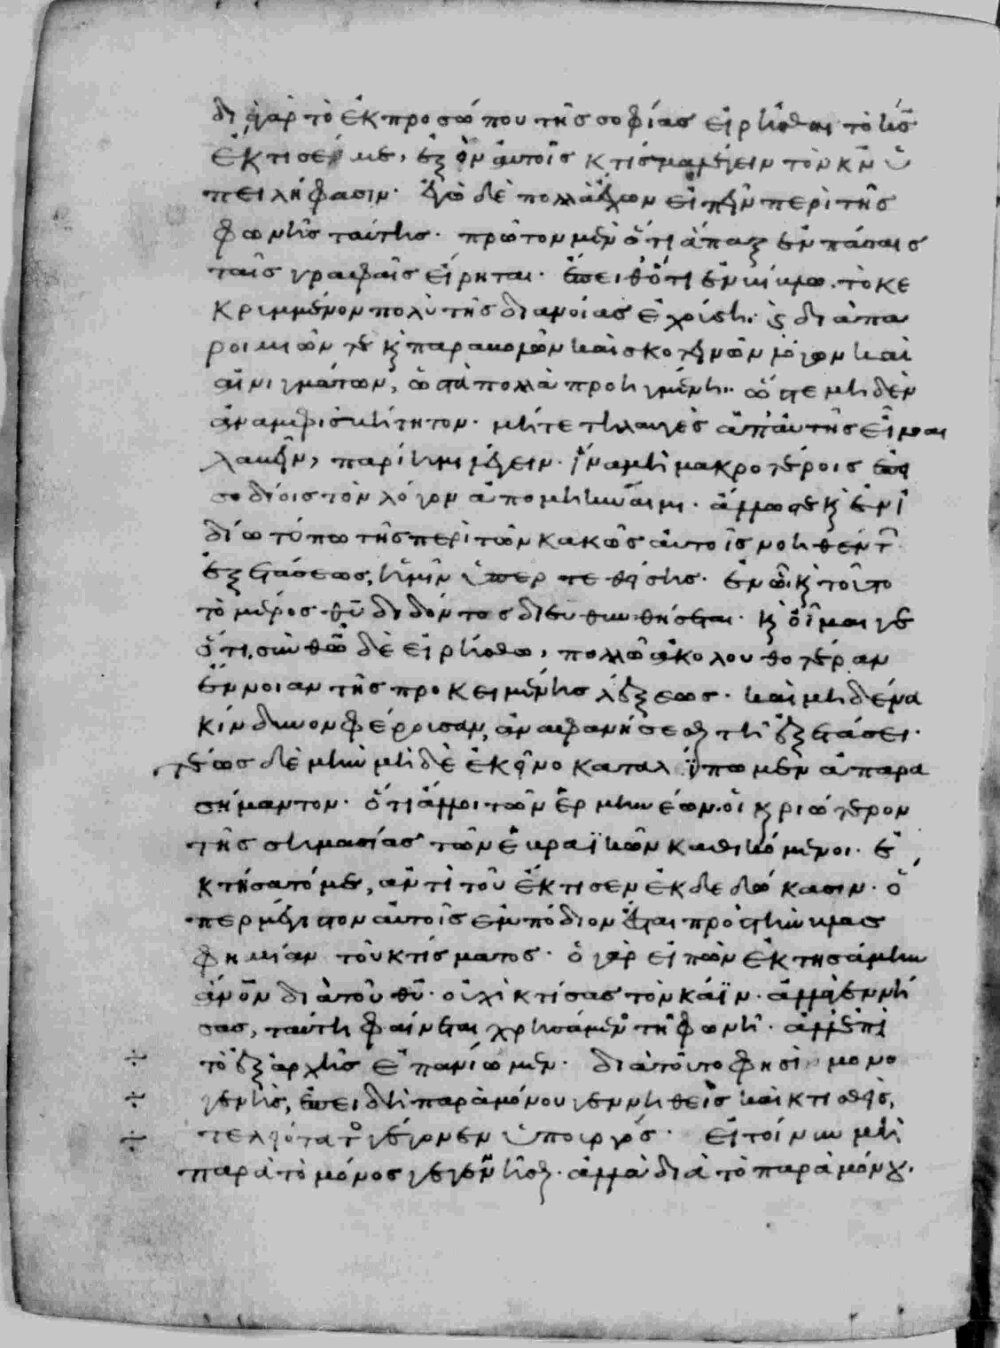 δι γὰρ τὸ ἐκ προσώπου τῆς σοφίας εἰρῆσθαι τὸ κ̅ς̅
ἔκτισέ με, ἐξ ὧν αὐτοῖς κτίσμα λέγειν τὸν κ̅ν̅ ὑ
πειλήφασιν. ἐγὼ δὲ πολλὰ ἔχων εἰπεῖν περὶ τῆς
φωνῆς ταύτης. πρῶτον μὲν ὅτι ἅπαξ ἐν πάσαις
ταῖς γραφαῖς εἴρηται. ἔπειθ' ὅτι ἐν βίβλω. τὸ κε
κρυμμένον πολὺ τῆς διανοίας ἐχούση. ϗ διὰ πα
ροιμιῶν τε ϗ παραβολῶν καὶ σκοτεινῶν λόγων καὶ
αἰνιγμάτων, ὡς τὰ πολλὰ προηγμένη. ὥστε μηδὲν
ἀναμφισβήτητον. μήτε τηλαυγὲς ἀπ' αὐτῆς εἶναι
λαβεῖν, παρίημι λέγειν. ἵνα μὴ μακροτέροις ἐπει
σοδίοις τὸν λόγον ἀπομηκύναιμι. ἄλλως τε ϗ ἐν ἰ
δίω τόπω τῆς περὶ τῶν κακῶς αὐτοῖς νοηθέντ
ἐξετάσεως, ἡμῖν ὑπερτεθείσης. ἐν ᾧ ϗ τοῦτο
τὸ μέρος θ̅υ̅ διδόντος διευθυνθήσεται. ϗ οἶμαί γε
ὅτι, σὺν θ̅ω̅ δὲ εἰρήσθω, πολλῶ ἀκολουθοτέραν
ἔννοιαν τῆς προκειμένης λέξεως. καὶ μηδένα
κίνδυνον φέρουσαν, ἀναφανήσεσθαι τῆ ἐξετάσει.
τέως δὲ μὴν μηδὲ ἐκεῖνο καταλίπωμεν ἀπαρα
σήμαντον. ὅτι ἄλλοι τῶν ἑρμηνέων. οἳ καιριώτερον
τῆς σημασίας τῶν ἑβραϊκῶν καθικόμενοι. ἐ
κτήσατό με, ἀντὶ τοῦ ἔκτισεν ἐκδεδώκασιν. ὅ
περ μέγιστον αὐτοῖς ἐμπόδιον ἔσται πρὸς τὴν βλασ
φημίαν τοῦ κτίσματος. ὁ γὰρ εἰπὼν ἐκτησάμην
ἄν̅ο̅ν̅ διὰ τοῦ θ̅υ̅. οὐχὶ κτίσας τὸν κάϊν. ἀλλὰ γεννή
σας, ταύτη φαίνεται χρησάμενος τῆ φωνῆ. ἀλλ' ἐπὶ
τὸ ἐξαρχῆς ἐπανίωμεν. διὰ τοῦτο φησὶ μονο
γενὴς, ἐπειδὴ παρὰ μόνου γεννηθεὶς καὶ κτισθεὶς,
τελειότατος γέγονεν ὑπουργός. εἰ τοίνυν μὴ
παρὰ τὸ μόνος γεγενῆσθαι. ἀλλὰ διὰ τὸ παρὰ μόνου.